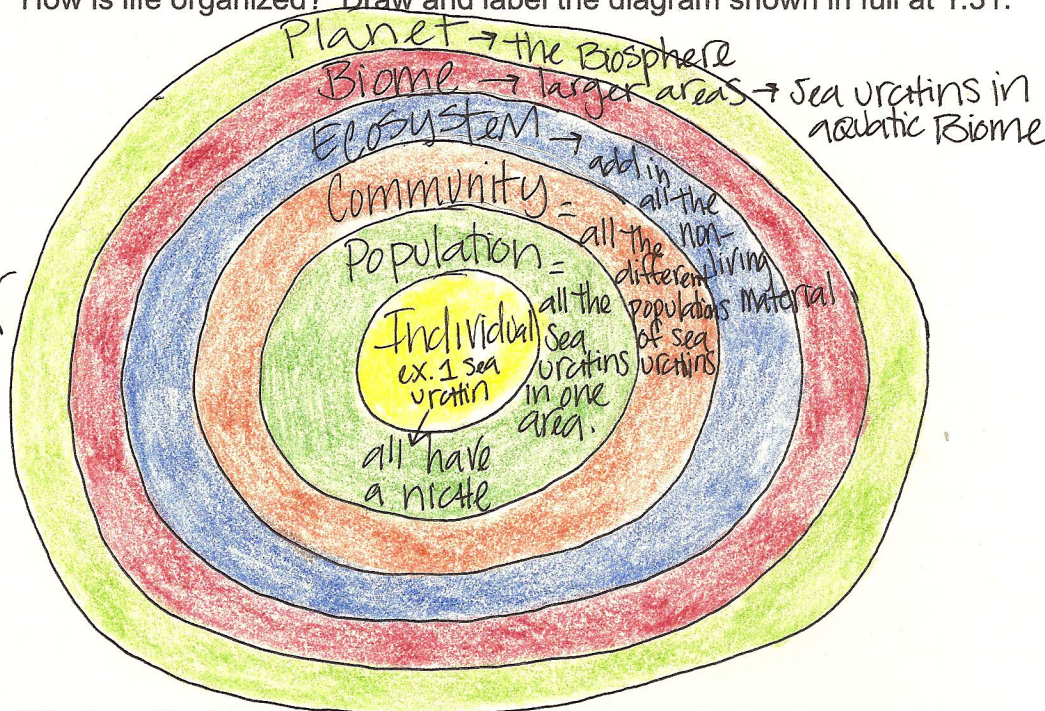 How is life organized? Draw and label the diagram shown in full at 1:31.
Planet → the Biosphere
Biome → larger areas → Sea urchins in
aquatic Biome
Ecosystem → add in
all the
non-
living
material
Community =
all the
different
populations
of sea
urchins
Population =
all the
sea
urchins
in one
area.
Individual
ex. 1 sea
urchin
all have
a niche